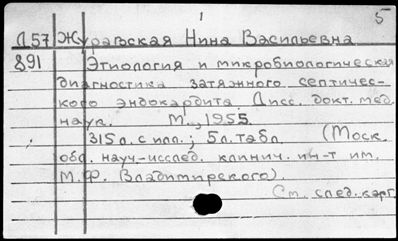 5
Д57 Журавская Нина Васильевна
891 Этиология и микробиологическая
диагностика затяжного септичес-
кого эндокардита. Дисс. докт. мед.
наук. М., 1955.
315 л. с илл.; 5 л. табл. (Моск.
обл. науч.-исслед. клинич. ин-т им.
М.Ф. Владимирского).
См. след. карт.